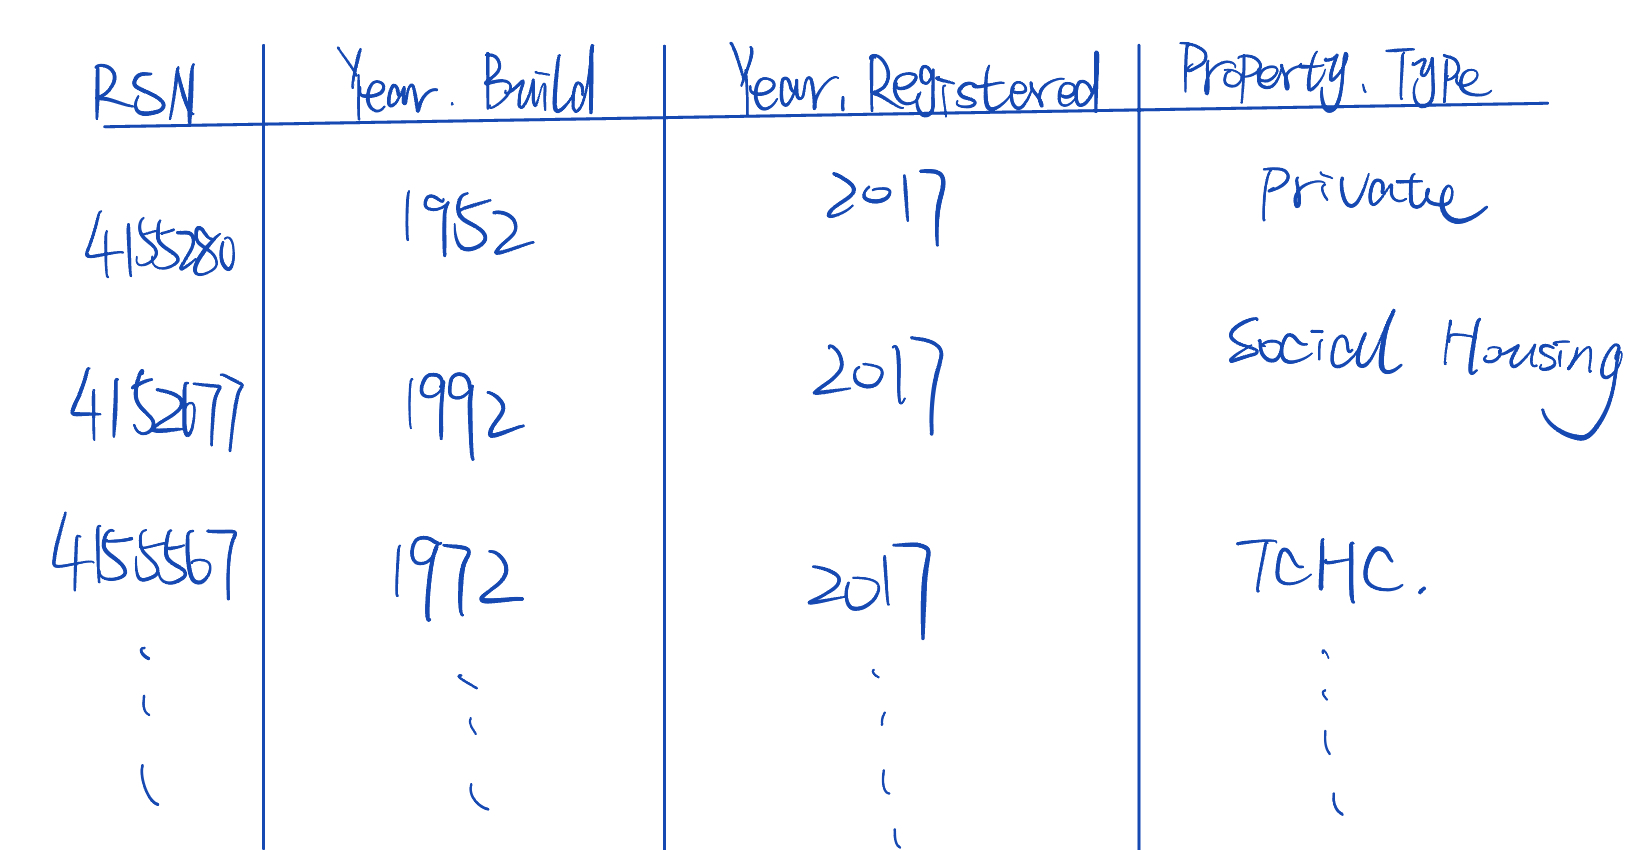 RSN Year. Build Year. Registered Property. Type
4155280 1952 2017 Private
4152677 1992 2017 Social Housing
4155567 1972 2017 TCHC.